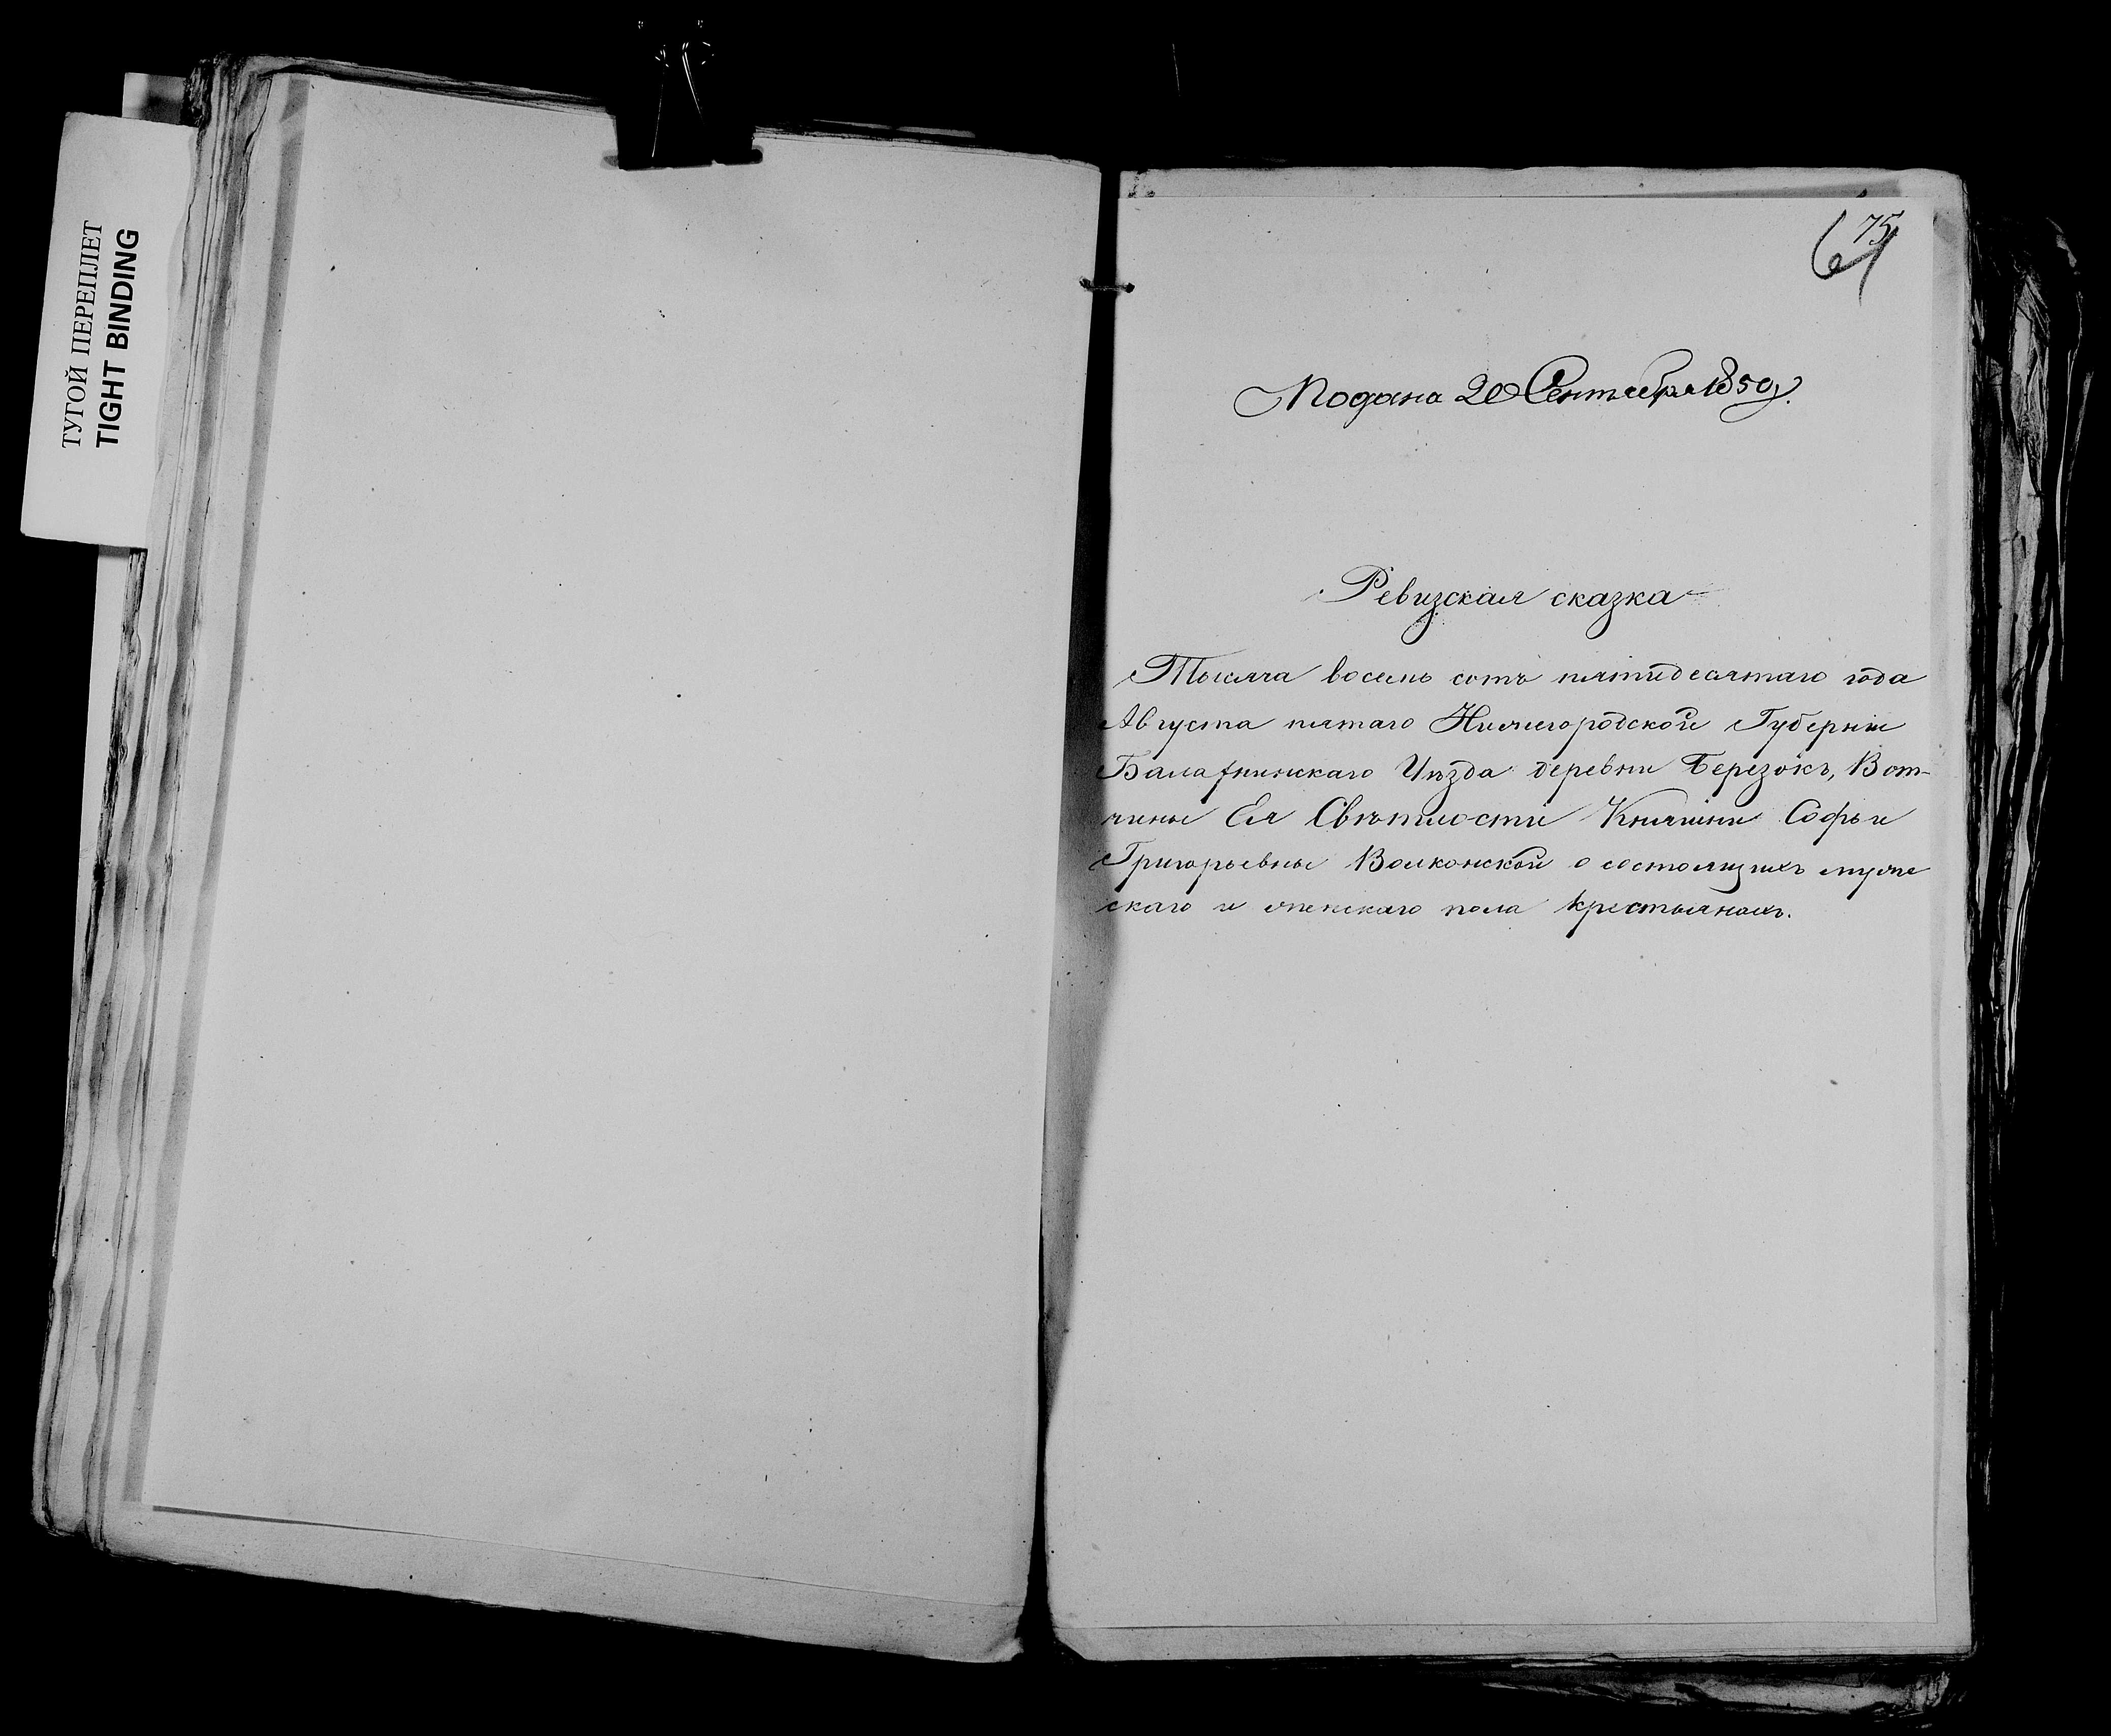 ТУГОЙ ПЕРЕПЛЕТ
TIGHT BINDING
75
Подана 20 Сентября 1850 г.
Ревизская сказка
Тысяча восемь сотъ пятидесятаго года
Августа пятаго Нижегородской Губерніи
Балахнинскаго Уѣзда деревни Березокъ, Вот-
чины Ея Свѣтлости Княгини Софьи
Григорьевны Волконской о состоящихъ муже
скаго и женскаго пола крестьянахъ.